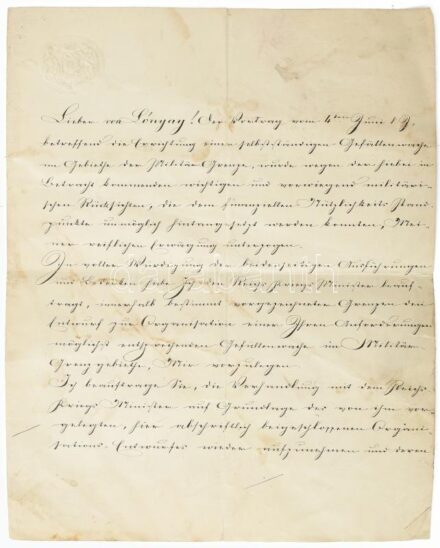 Lieber von Lónyay! Der Vortrag vom 4ten Juni l. J.
betreffend die Errichtung einer selbstständigen Gefällenwache
im Gebiethe der Militär-Grenze, wurde wegen der hiebei in
Betracht kommenden wichtigen und vorwiegend militäri-
schen Rücksichten, die dem finanziellen Nützlichkeits Stand-
punkte unmöglich hintangesetzt werden konnten, Mei-
ner reiflichen Erwägung unterzogen.
In voller Würdigung der beiderseitigen Ausführungen
und Bedenken habe Ich den Reichs Kriegs Minister beauf-
tragt, innerhalb bestimmt vorgezeichneter Grenzen den
Entwurf zur Organisation einer Ihren Anforderungen
möglichst entsprechenden Gefällenwache im Militär-
Grenzgebiethe, Mir vorzulegen.
Ich beauftrage Sie, die Verhandlung mit dem Reichs
Kriegs Minister auf Grundlage des von ihm vor-
gelegten, hier abschriftlich beigeschlossenen Organi-
sations-Entwurfes wieder aufzunehmen und deren